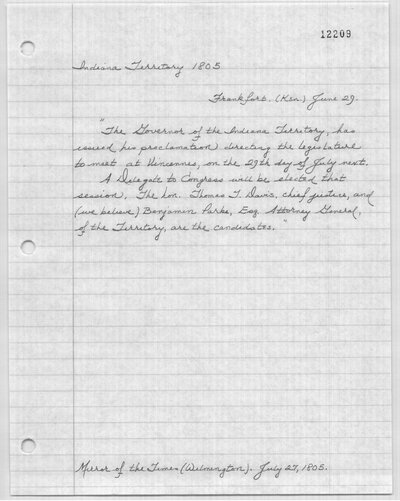 12209
Indiana Territory 1805
Frankfort. (Ken.) June 29.
"The Governor of the Indiana Territory, has
issued his proclamation directing the legislature
to meet at Vincennes, on the 29th day of July next.
A Delegate to Congress will be elected that
session. The hon. Thomas T. Davis, chief justice, and
(we believe) Benjamin Parke, Esq. Attorney General,
of the Territory, are the candidates."
Mirror of the Times (Wilmington). July 27, 1805.